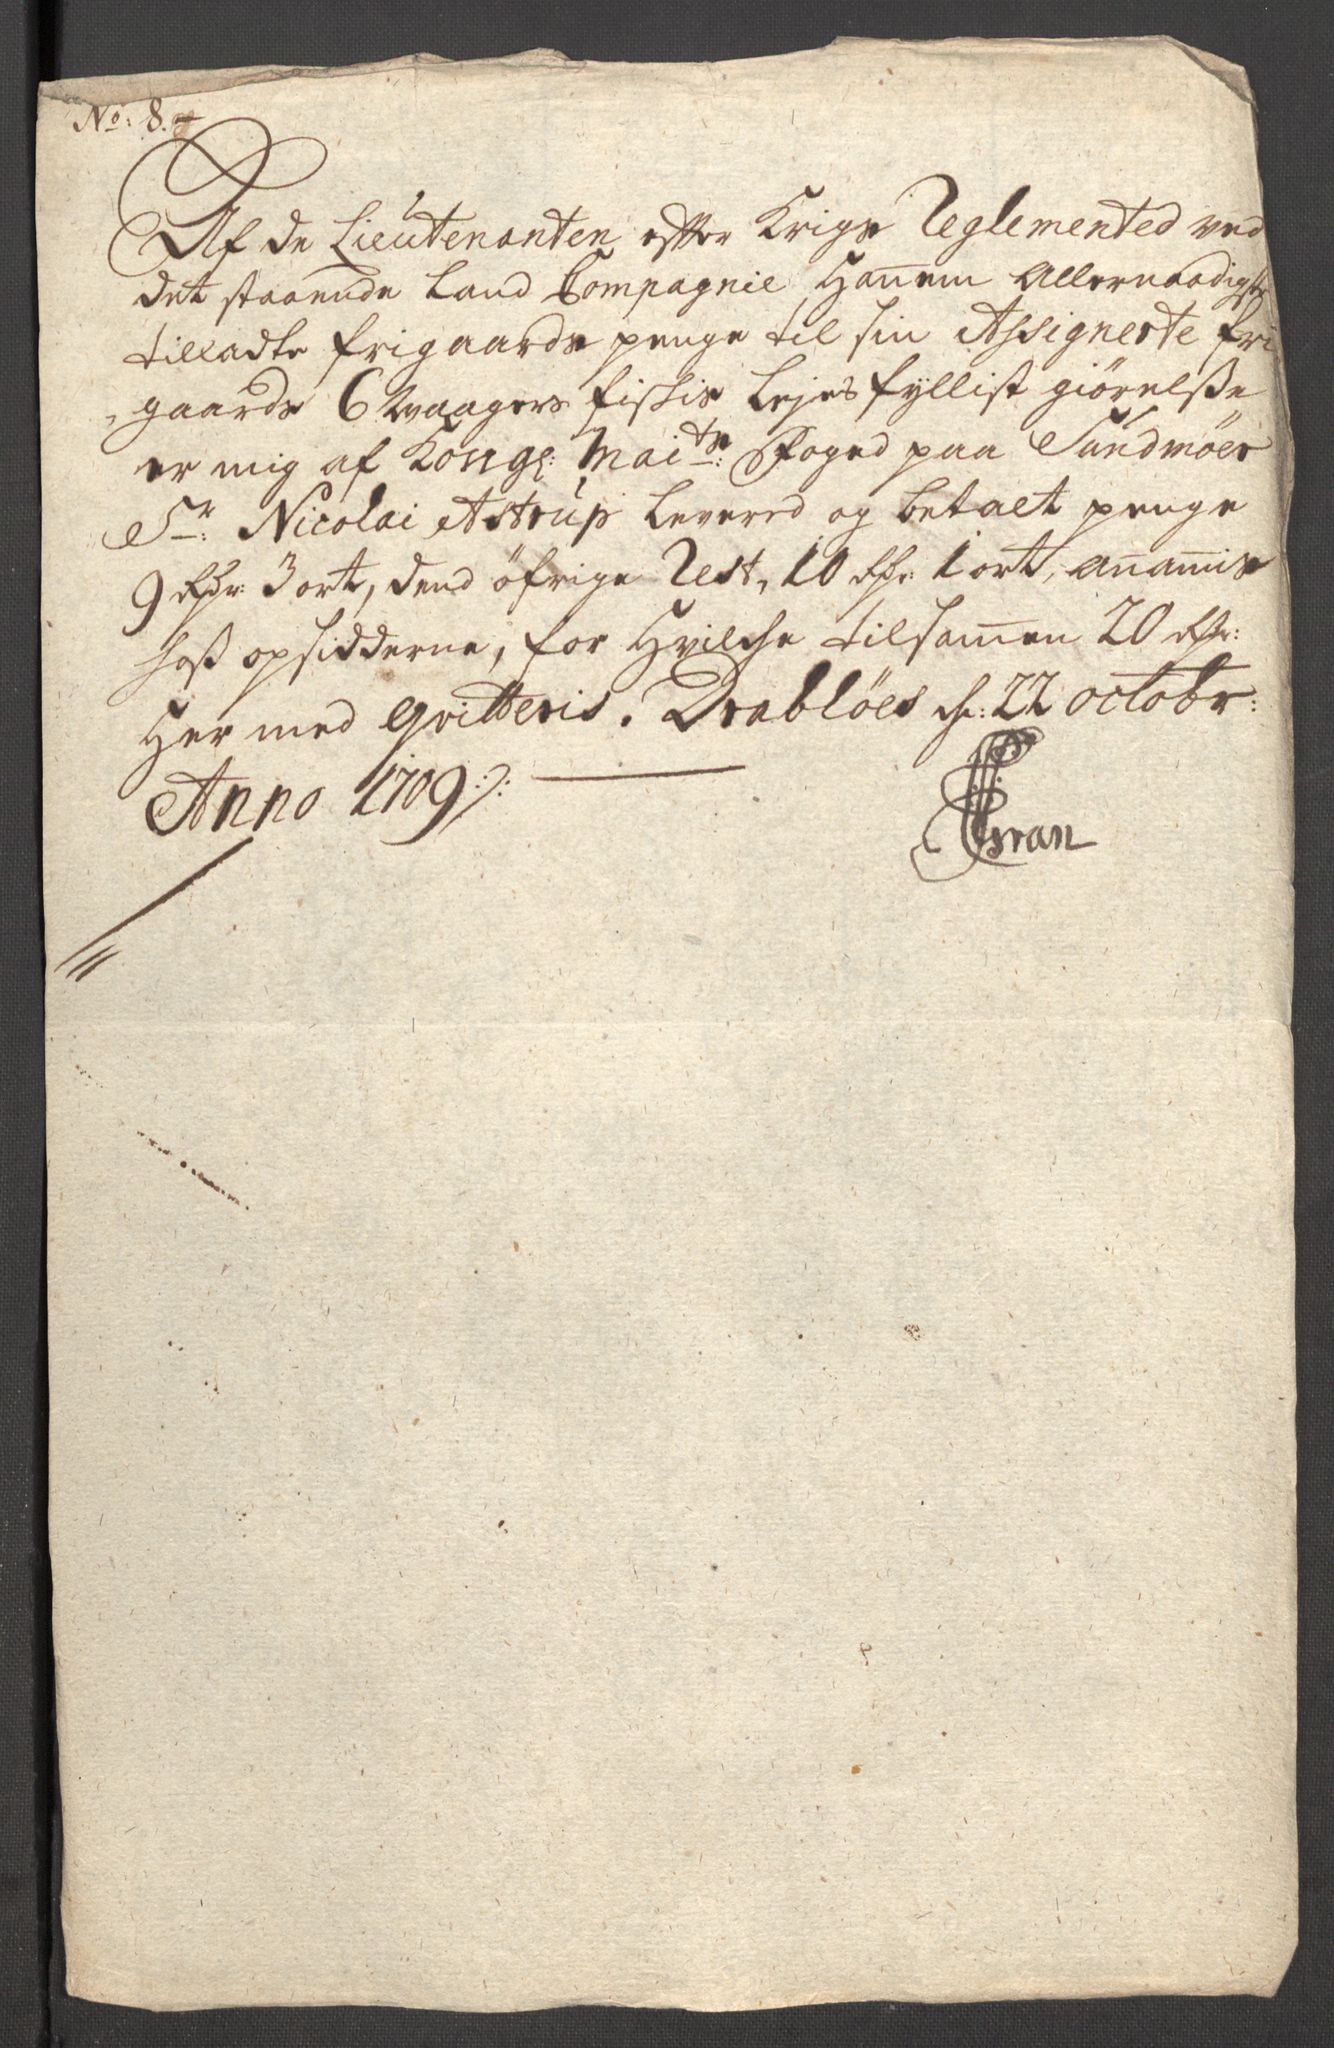 No: 8.
Af de Lieutenanten efter Krigs Reglemented ved
det staaende Land Compagnie Hannem Allernaadigst
tilladte frigaards penge til sin Assignerte fri
gaards 6 Waagers fiskis Lejes fyllist giörelsse
er mig af Kongl: Maits: Foged paa Sundmöer
Sr: Nicolai Astrup Levered og betalt penge
9 Rdr: 3 ort, dend öfrige Rest, 10 Rdr: 1 ort, annammis
hoss opsidderne, for Hvilche tilsammen 20 Rdr:
Her med qvitteris. Drablöes d: 22 octobr:
Anno 1709